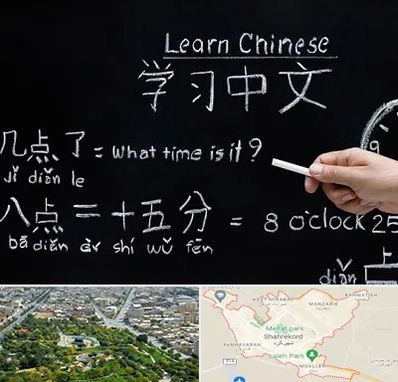 Learn Chinese
学习中文
几点了 = what time is it?
jǐ diǎn le
八点二十五分 = 8 o'clock 25
bā diǎn èr shí wǔ fēn
diǎn
9
WEST MIRABAD
MANZARIE
Mellat park
Shahrekord
شهرکرد
Laleh Park
MOALLEM